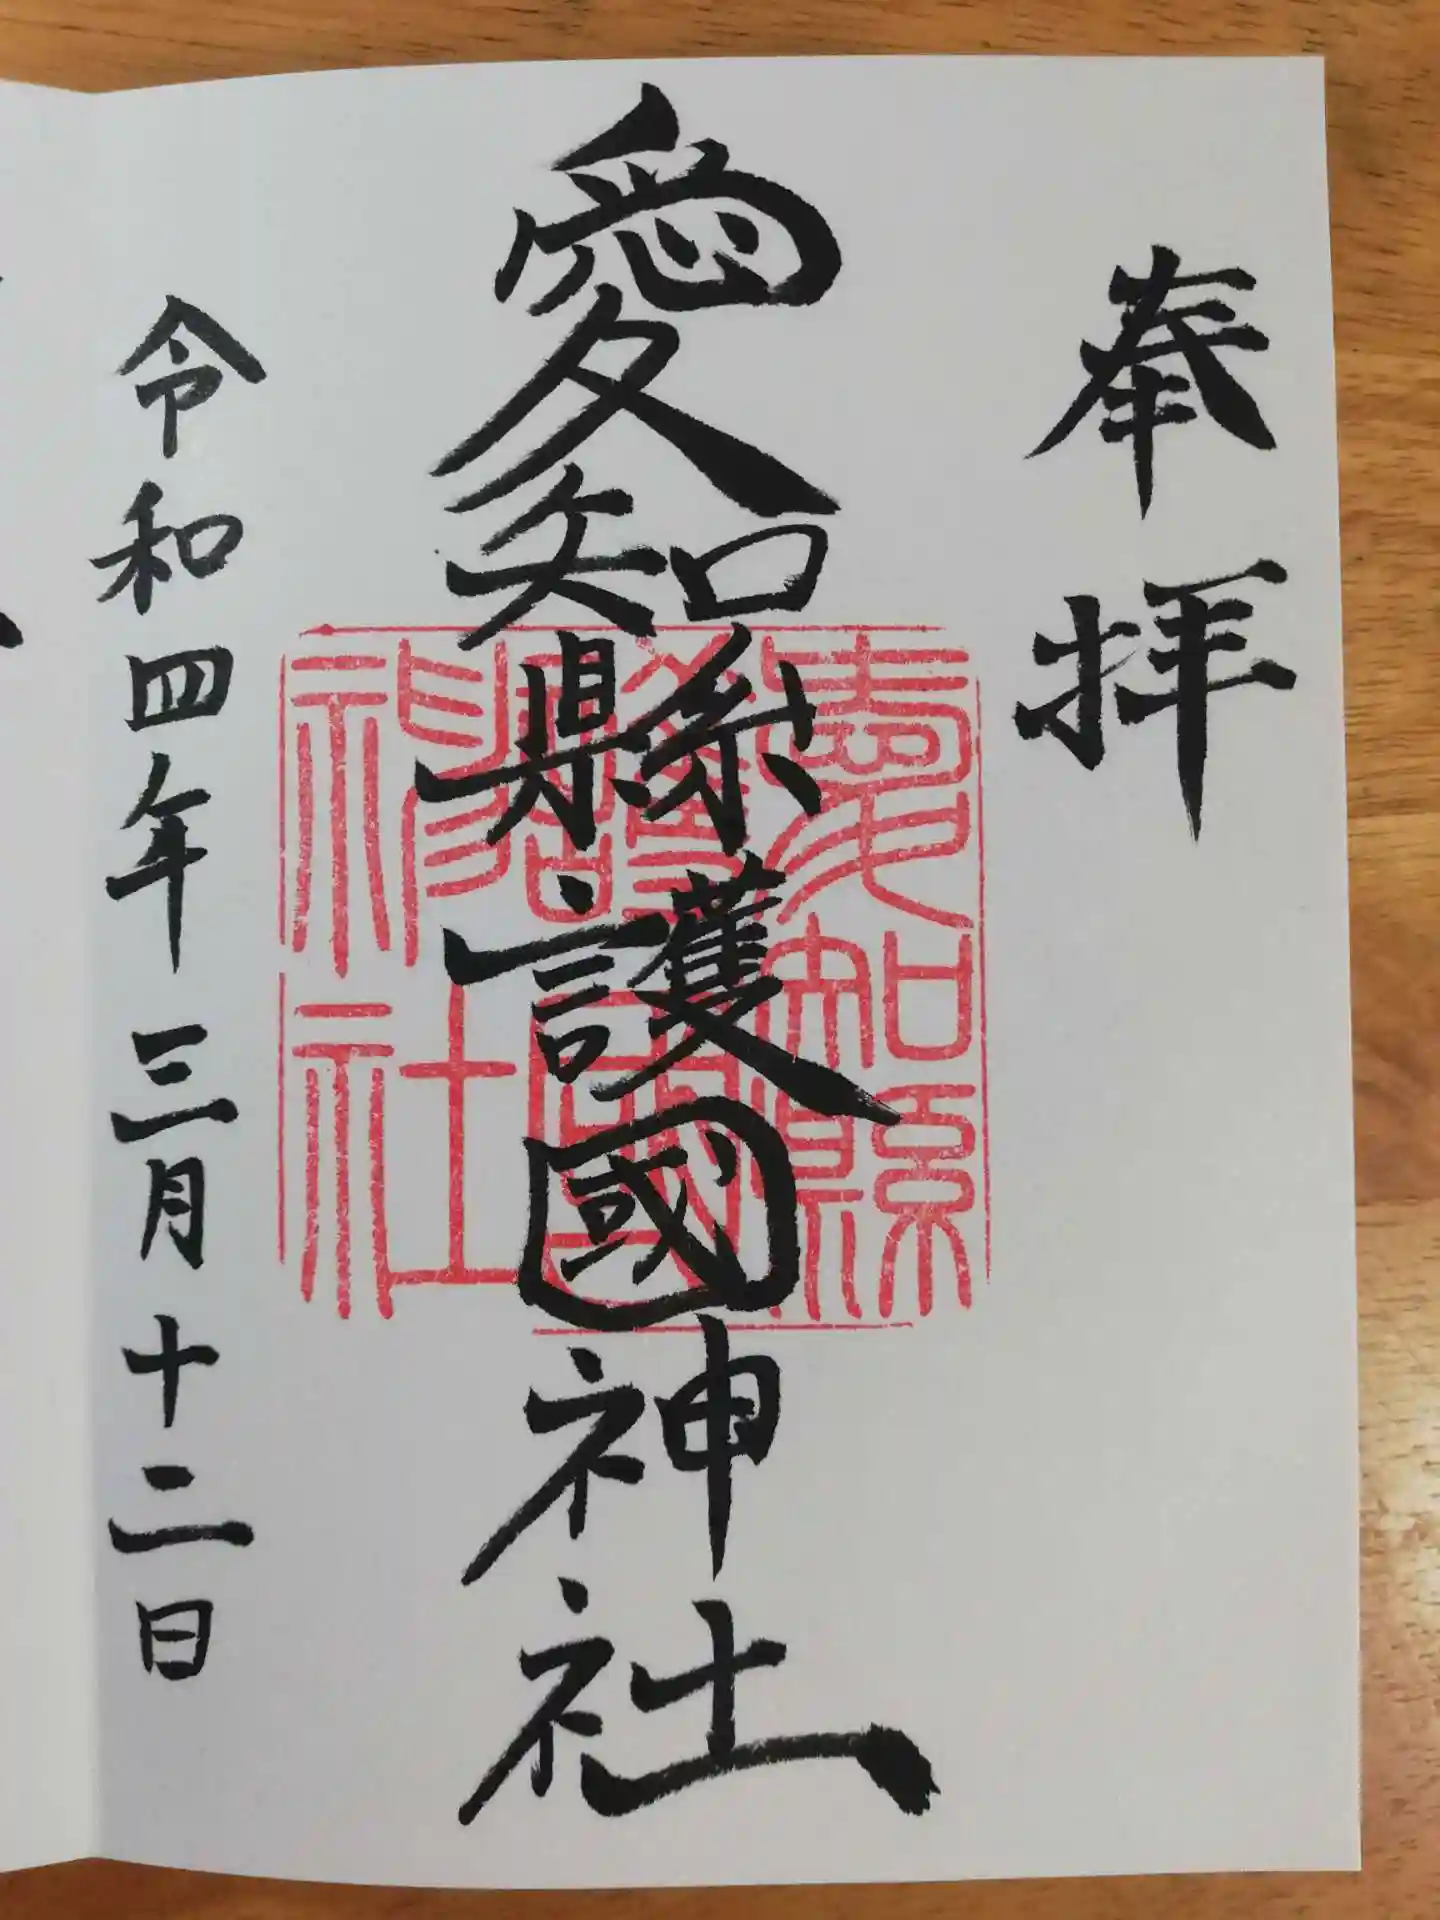 奉拝
愛知縣護國神社
愛知縣
護國
神社
令和四年三月十二日